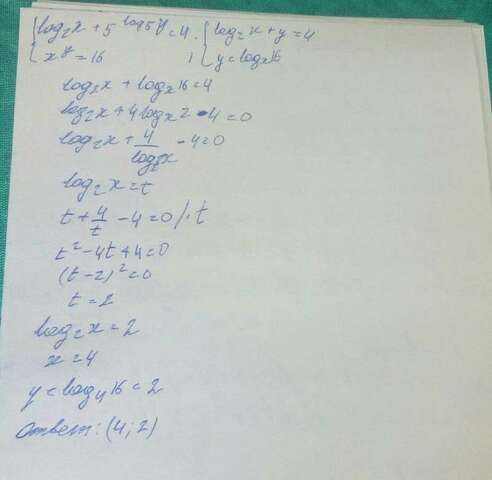 {log₂x + 5^log₅y = 4. {log₂x + y = 4
{x^y = 16 ; {y = logₓ16
log₂x + logₓ16 = 4
log₂x + 4logₓ2 - 4 = 0
log₂x + 4/log₂x - 4 = 0
log₂x = t
t + 4/t - 4 = 0 /·t
t² - 4t + 4 = 0
(t - 2)² = 0
t = 2
log₂x = 2
x = 4
y = log₄16 = 2
Ответ: (4; 2)